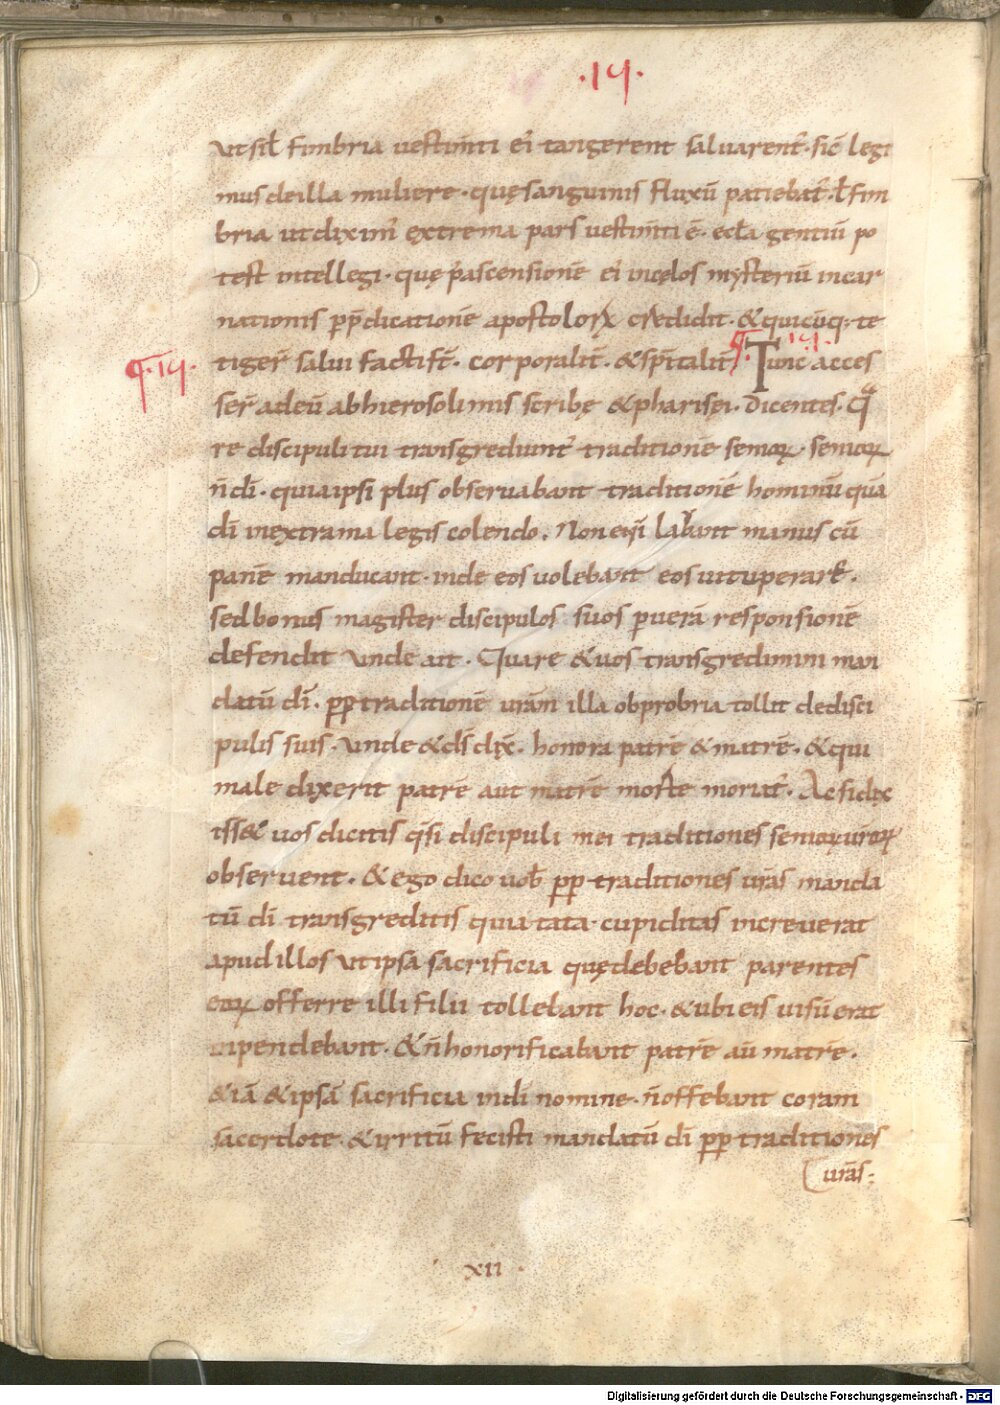 .14.
ut sil̄ fimbria uestim̄ti ei᾽ tangerent saluarent᾽. sic̄ legi
mus deilla muliere. quę sanguinis fluxū patiebat᾽. l̄ fim
bria ut dixim᾽ extrema pars uestim̄ti ē. eccl̄a gentiū po
test intellegi. quę p᾽ ascensionē ei᾽ incęlos mysteriū incar
nationis pp̄dicationē apostoloꝝ credidit. &quicūq; te
tiger̄ salui factis̄t. corporalit̄. &sp̄italit̄ ¶. 14. Tunc acces
¶. 14.
ser̄ adeū abhierosolimis scribę &pharisęi. Dicentes. Qa
re discipuli tui transgrediunt᾽ traditionē senioꝝ. senioꝝ
n̄ dī. quia ipsi plus obseruabant traditionē hominū quā
dī inextrama legis colendo. Non eni᾽ labant manus cū
panē manducant. inde eos uolebant eos uituperare.
sed bonus magister discipulos suos p uerā responsionē
defendit unde ait. Quare &uos transgredimini man
datū dī. pp traditionē urām illa obprobria tollit dedisci
pulis suis. unde &ds̄ dix̄. honora patrē &matrē. &qui
male dixerit patrē aut matrē morte moriat᾽. Ac si dix
iss& uos dicitis qs̄i discipuli mei traditiones senioꝝ uroꝝ
obseruent. &ego dico uob̄ pp traditiones urās manda
tū dī transgreditis quia tata cupiditas increuerat
apud illos ut ipsa sacrificia quę debebant parentes
eoꝝ offerre illi filii tollebant hoc. &ubi eis uisū erat
inpendebant. &n̄ honorificabant patrē au᾽ matrē.
&iā &ipsā sacrificia indī nomine. n̄ offebant coram
sacerdote. &irritū fecisti mandatū dī pp traditiones
urās:
xii
Digitalisierung gefördert durch die Deutsche Forschungsgemeinschaft - DFG